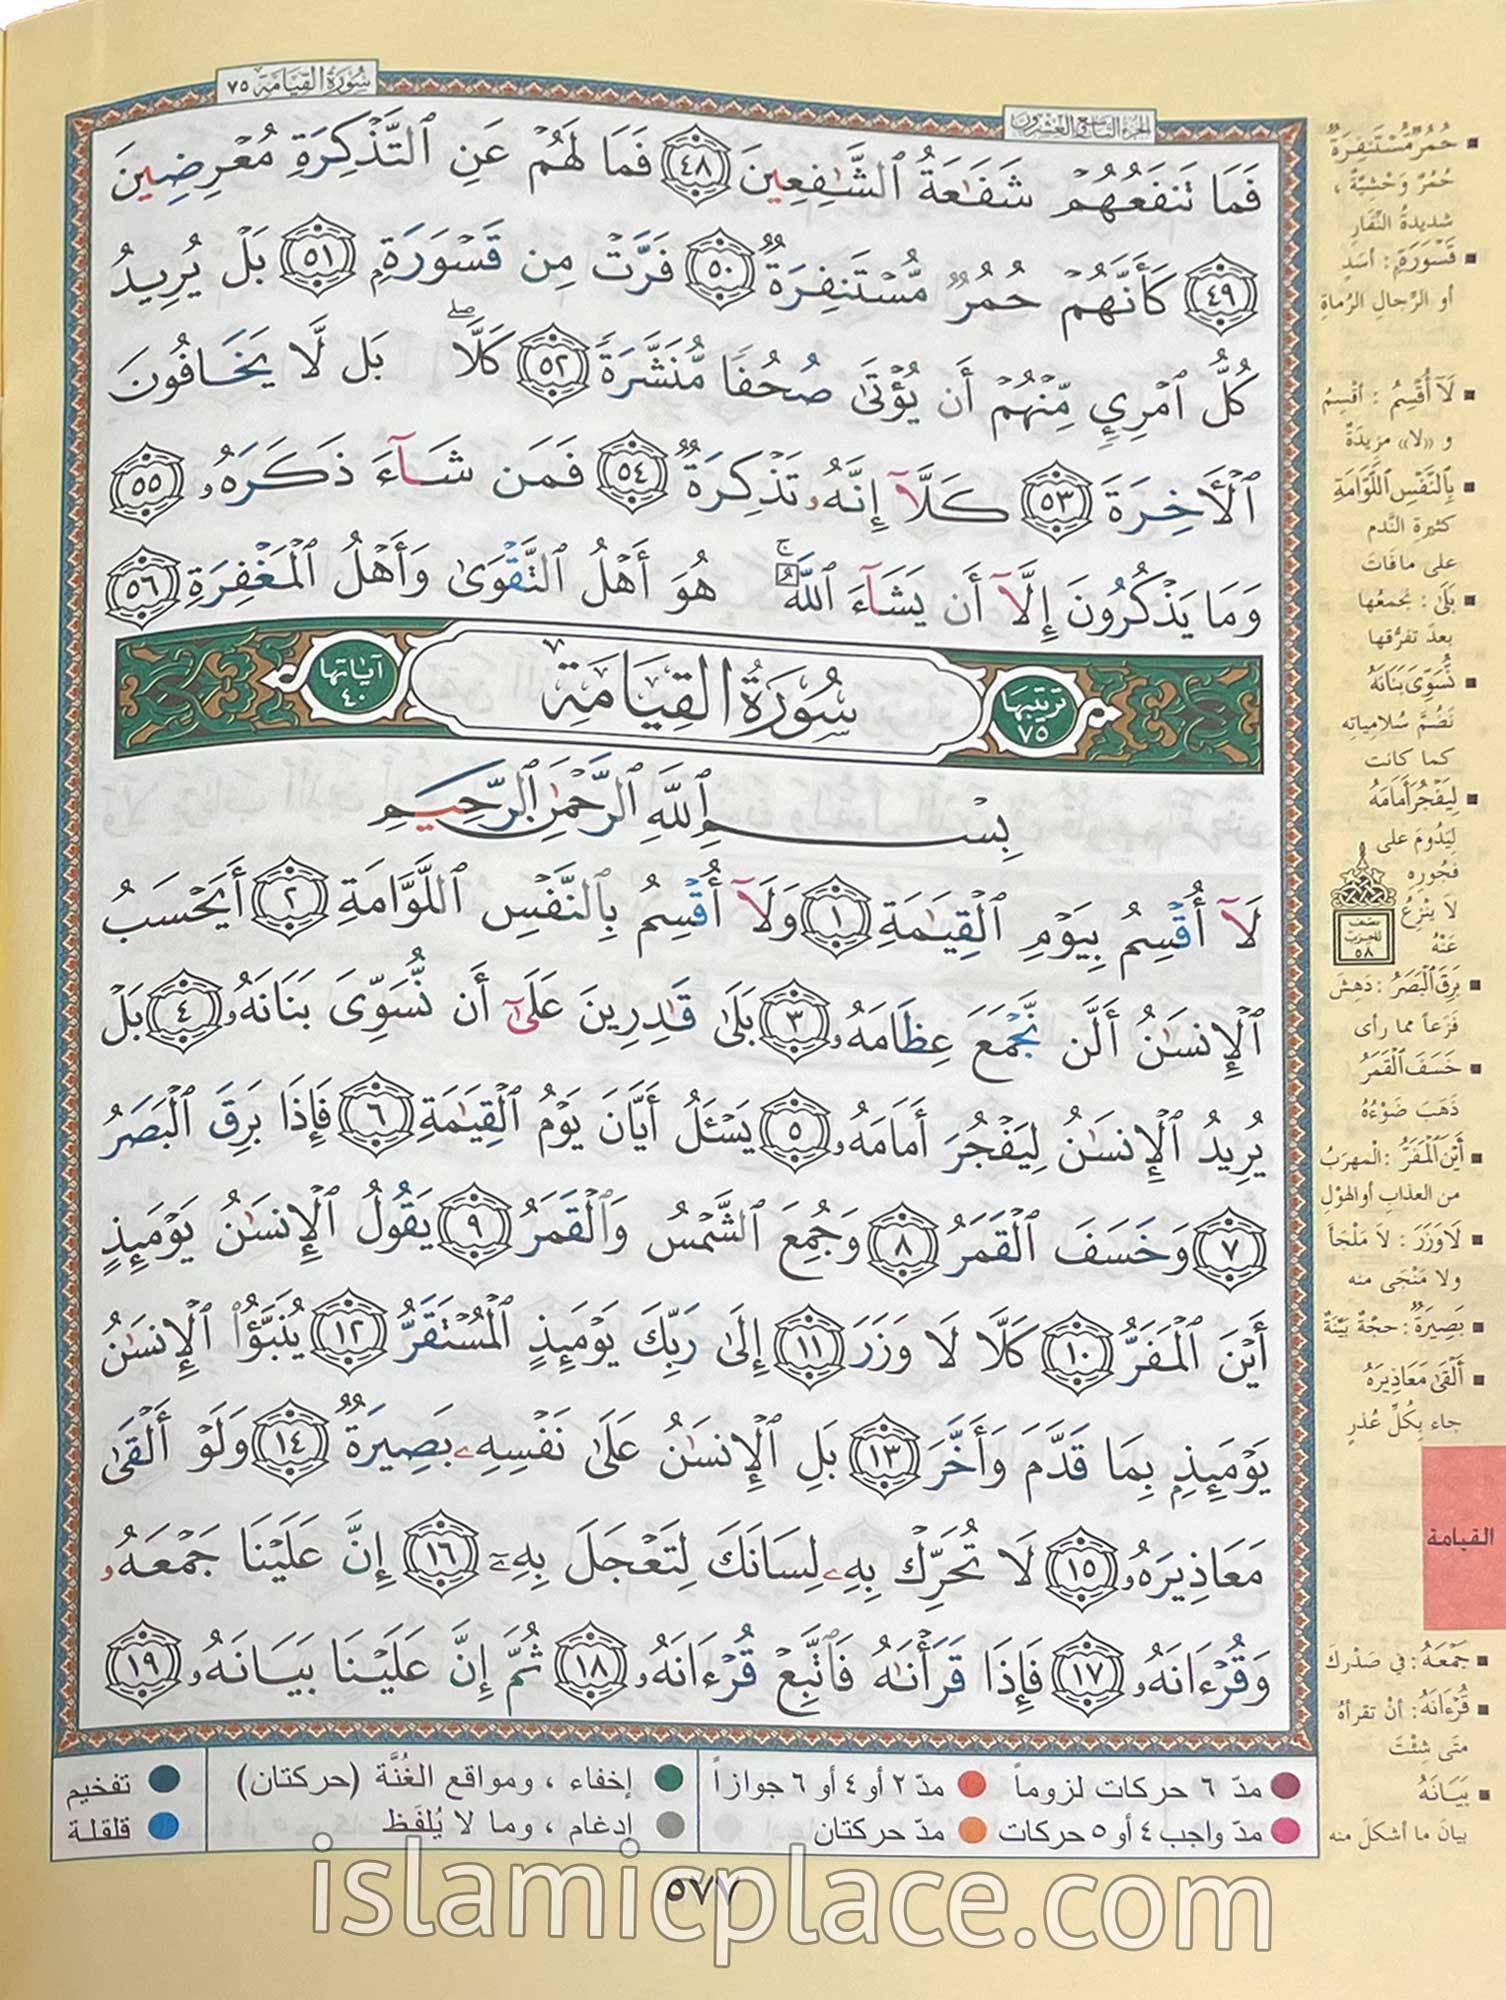 سُورَةُ القِيَامَة ٧٥
الجزء التاسع والعشرون
فَمَا تَنفَعُهُمۡ شَفَٰعَةُ ٱلشَّٰفِعِينَ ٤٨ فَمَا لَهُمۡ عَنِ ٱلتَّذۡكِرَةِ مُعۡرِضِينَ
٤٩ كَأَنَّهُمۡ حُمُرٞ مُّسۡتَنفِرَةٞ ٥٠ فَرَّتۡ مِن قَسۡوَرَةِۭ ٥١ بَلۡ يُرِيدُ
كُلُّ ٱمۡرِيٕٖ مِّنۡهُمۡ أَن يُؤۡتَىٰ صُحُفٗا مُّنَشَّرَةٗ ٥٢ كَلَّاۖ بَل لَّا يَخَافُونَ
ٱلۡأٓخِرَةَ ٥٣ كَلَّآ إِنَّهُۥ تَذۡكِرَةٞ ٥٤ فَمَن شَآءَ ذَكَرَهُۥ ٥٥
وَمَا يَذۡكُرُونَ إِلَّآ أَن يَشَآءَ ٱللَّهُۚ هُوَ أَهۡلُ ٱلتَّقۡوَىٰ وَأَهۡلُ ٱلۡمَغۡفِرَةِ ٥٦
ترتيبها ٧٥ سُورَةُ القِيَامَةِ آياتها ٤٠
بِسۡمِ ٱللَّهِ ٱلرَّحۡمَٰنِ ٱلرَّحِيمِ
لَآ أُقۡسِمُ بِيَوۡمِ ٱلۡقِيَٰمَةِ ١ وَلَآ أُقۡسِمُ بِٱلنَّفۡسِ ٱللَّوَّامَةِ ٢ أَيَحۡسَبُ
ٱلۡإِنسَٰنُ أَلَّن نَّجۡمَعَ عِظَامَهُۥ ٣ بَلَىٰ قَٰدِرِينَ عَلَىٰٓ أَن نُّسَوِّيَ بَنَانَهُۥ ٤ بَلۡ
يُرِيدُ ٱلۡإِنسَٰنُ لِيَفۡجُرَ أَمَامَهُۥ ٥ يَسۡـَٔلُ أَيَّانَ يَوۡمُ ٱلۡقِيَٰمَةِ ٦ فَإِذَا بَرِقَ ٱلۡبَصَرُ
٧ وَخَسَفَ ٱلۡقَمَرُ ٨ وَجُمِعَ ٱلشَّمۡسُ وَٱلۡقَمَرُ ٩ يَقُولُ ٱلۡإِنسَٰنُ يَوۡمَئِذٍ
أَيۡنَ ٱلۡمَفَرُّ ١٠ كَلَّا لَا وَزَرَ ١١ إِلَىٰ رَبِّكَ يَوۡمَئِذٍ ٱلۡمُسۡتَقَرُّ ١٢ يُنَبَّؤُاْ ٱلۡإِنسَٰنُ
يَوۡمَئِذِۭ بِمَا قَدَّمَ وَأَخَّرَ ١٣ بَلِ ٱلۡإِنسَٰنُ عَلَىٰ نَفۡسِهِۦ بَصِيرَةٞ ١٤ وَلَوۡ أَلۡقَىٰ
مَعَاذِيرَهُۥ ١٥ لَا تُحَرِّكۡ بِهِۦ لِسَانَكَ لِتَعۡجَلَ بِهِۦٓ ١٦ إِنَّ عَلَيۡنَا جَمۡعَهُۥ
وَقُرۡءَانَهُۥ ١٧ فَإِذَا قَرَأۡنَٰهُ فَٱتَّبِعۡ قُرۡءَانَهُۥ ١٨ ثُمَّ إِنَّ عَلَيۡنَا بَيَانَهُۥ ١٩
حُمُرٌ مُسْتَنفِرَةٌ
حُمُرٌ وَحْشِيَّةٌ ،
شديدةُ النِّفَارِ
قَسْوَرَةٍ : أسَدٍ
أو الرِّجالِ الرُّماةِ
لَآ أُقْسِمُ : أُقْسِمُ
و «لا» مزيدةٌ
بِالنَّفْسِ اللَّوَّامَةِ
كثيرةِ النَّدم
على ما فات
بَلَى : نجمعُها
بعدَ تفرُّقِها
نُّسَوِّيَ بَنَانَهُ
نَضُمَّ سُلامِياتِه
كما كانت
لِيَفْجُرَ أَمَامَهُ
لِيَدُومَ على
فُجُورِهِ
لا يَنْزِعُ
عَنْهُ
نصف الحزب ٥٨
بَرِقَ الْبَصَرُ : دَهِشَ
فَزَعاً مما رأى
خَسَفَ الْقَمَرُ
ذَهَبَ ضَوْءُهُ
أَيْنَ الْمَفَرُّ : الْمَهرَبُ
من العذابِ أو الهَوْلِ
لَا وَزَرَ : لا مَلْجَأَ
ولا مَنْجَى منه
بَصِيرَةٌ : حجّةٌ بَيّنَةٌ
أَلْقَى مَعَاذِيرَهُ
جاء بِكُلِّ عُذرٍ
القيامة
جَمْعَهُ : في صَدْرِكَ
قُرْءَانَهُ : أنْ تقرأهُ
متى شئْتَ
بَيَانَهُ
بيانَ ما أشكلَ منه
مدّ ٦ حركات لزوماً مدّ ٢ أو ٤ أو ٦ جوازاً إخفاء ، ومواقع الغُنَّة (حركتان) تفخيم
مدّ واجب ٤ أو ٥ حركات مدّ حركتان إدغام ، وما لا يُلفَظ قلقلة
٥٧٧
islamicplace.com